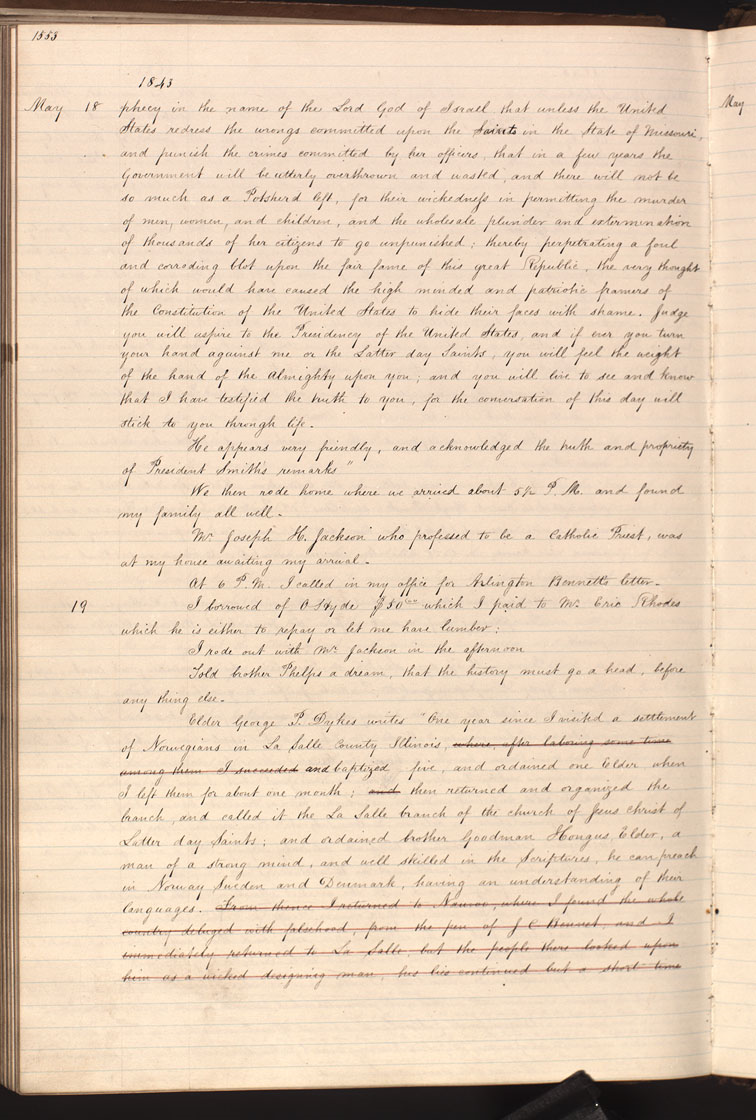 1553
1843
May 18 phecy in the name of the Lord God of Israel that unless the United
May
States redress the wrongs committed upon the Saints in the State of Missouri,
and punish the crimes committed by her officers, that in a few years the
Government will be utterly overthrown and wasted, and there will not be
so much as a Potsherd left, for their wickedness in permitting the murder
of men, women, and children, and the wholesale plunder and extermination
of thousands of her citizens to go unpunished; thereby perpetrating a foul
and corroding blot upon the fair fame of this great Republic, the very thought
of which would have caused the high minded and patriotic framers of
the Constitution of the United States to hide their faces with shame. Judge
you will aspire to the Presidency of the United States, and if ever you turn
your hand against me or the Latter day Saints, you will feel the weight
of the hand of the Almighty upon you; and you will live to see and know
that I have testified the truth to you, for the conversation of this day will
stick to you through life.
He appears very friendly, and acknowledged the truth and propriety
of President Smith's remarks"
We then rode home where we arrived about 5½ P. M. and found
my family all well.
Mr Joseph H. Jackson who professed to be a Catholic Priest, was
at my house awaiting my arrival.
At 6 P.M. I called in my office for Arlington Bennetts letter.
19 I borrowed of O Hyde $50 00 which I paid to Mr Eric Rhodes
which he is either to repay or let me have lumber:
I rode out with Mr Jackson in the afternoon
Told brother Phelps a dream, that the history must go a head, before
any thing else.
Elder George P. Dykes writes "One year since I visited a settlement
of Norwegians in La Salle County Illinois, where, after laboring some time
among them I succeeded and baptized five, and ordained one Elder when
I left them for about one month; and then returned and organized the
branch, and called it the La Salle branch of the church of Jesus Christ of
Latter day Saints; and ordained brother Goodman Hougus, Elder, a
man of a strong mind, and well skilled in the Scriptures, he can preach
in Norway Sweden and Denmark, having an understanding of their
languages. From thence I returned to Nauvoo, where I found the whole
country deluged with falsehood, from the pen of J C Bennet, and I
immediately returned to La Salle, but the people there looked upon
him as a wicked designing man, his lies continued but a short time